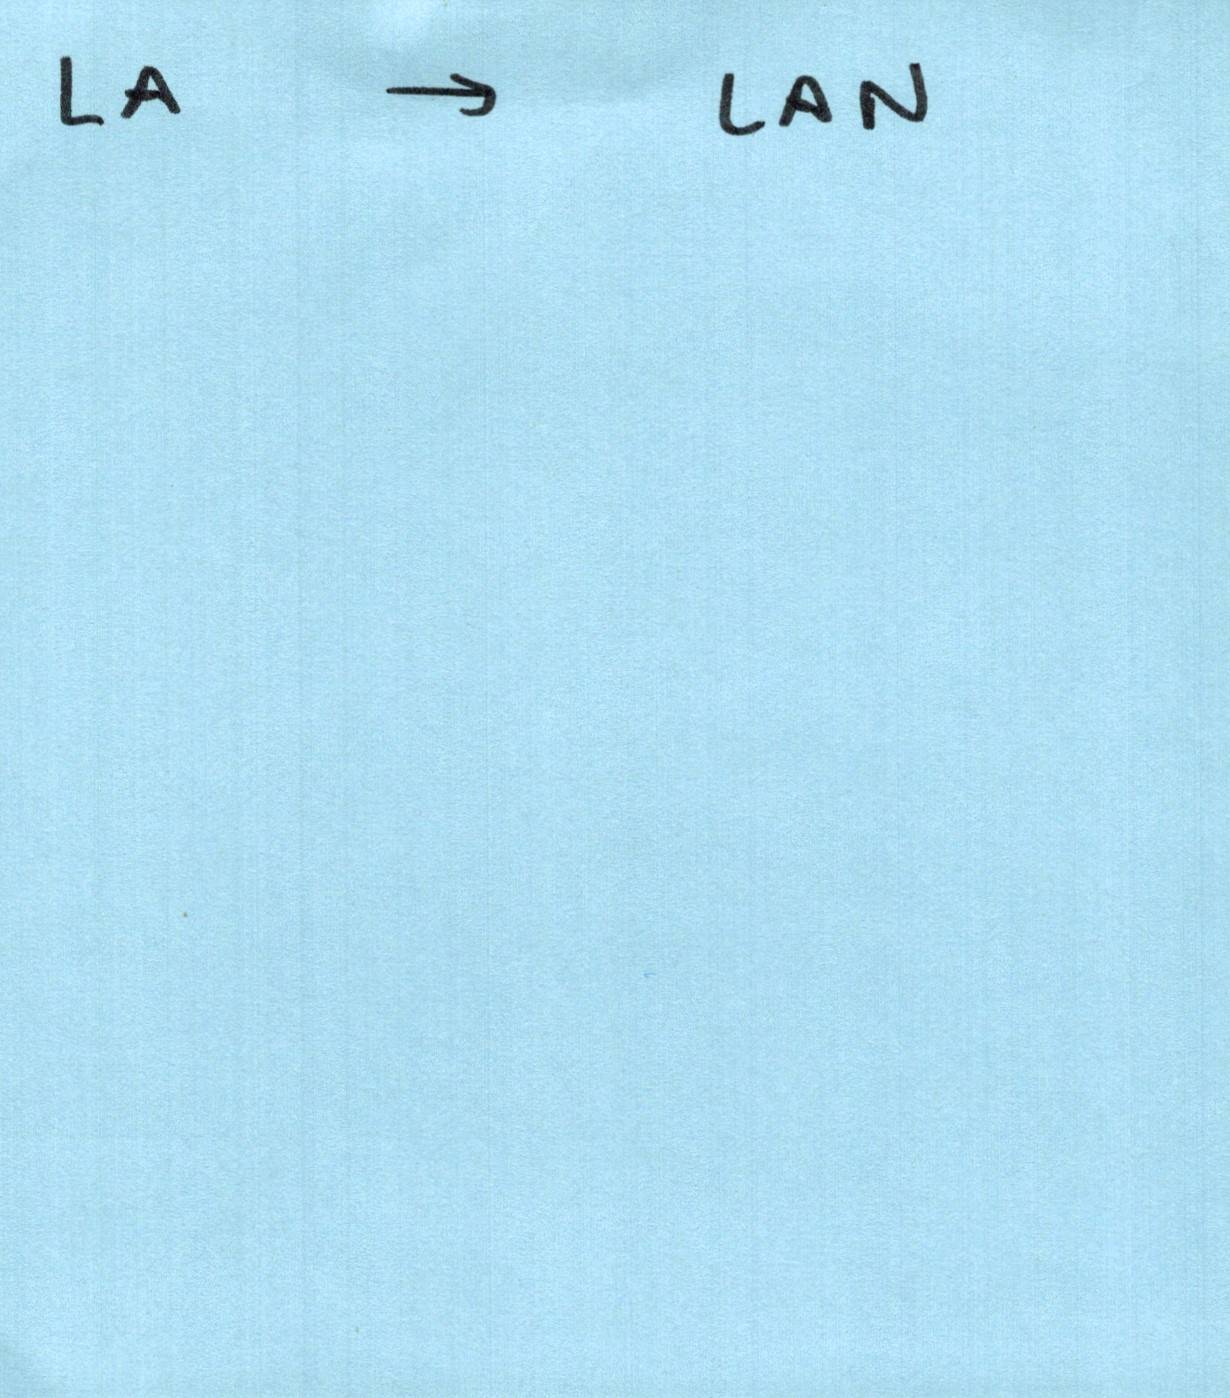 LA → LAN